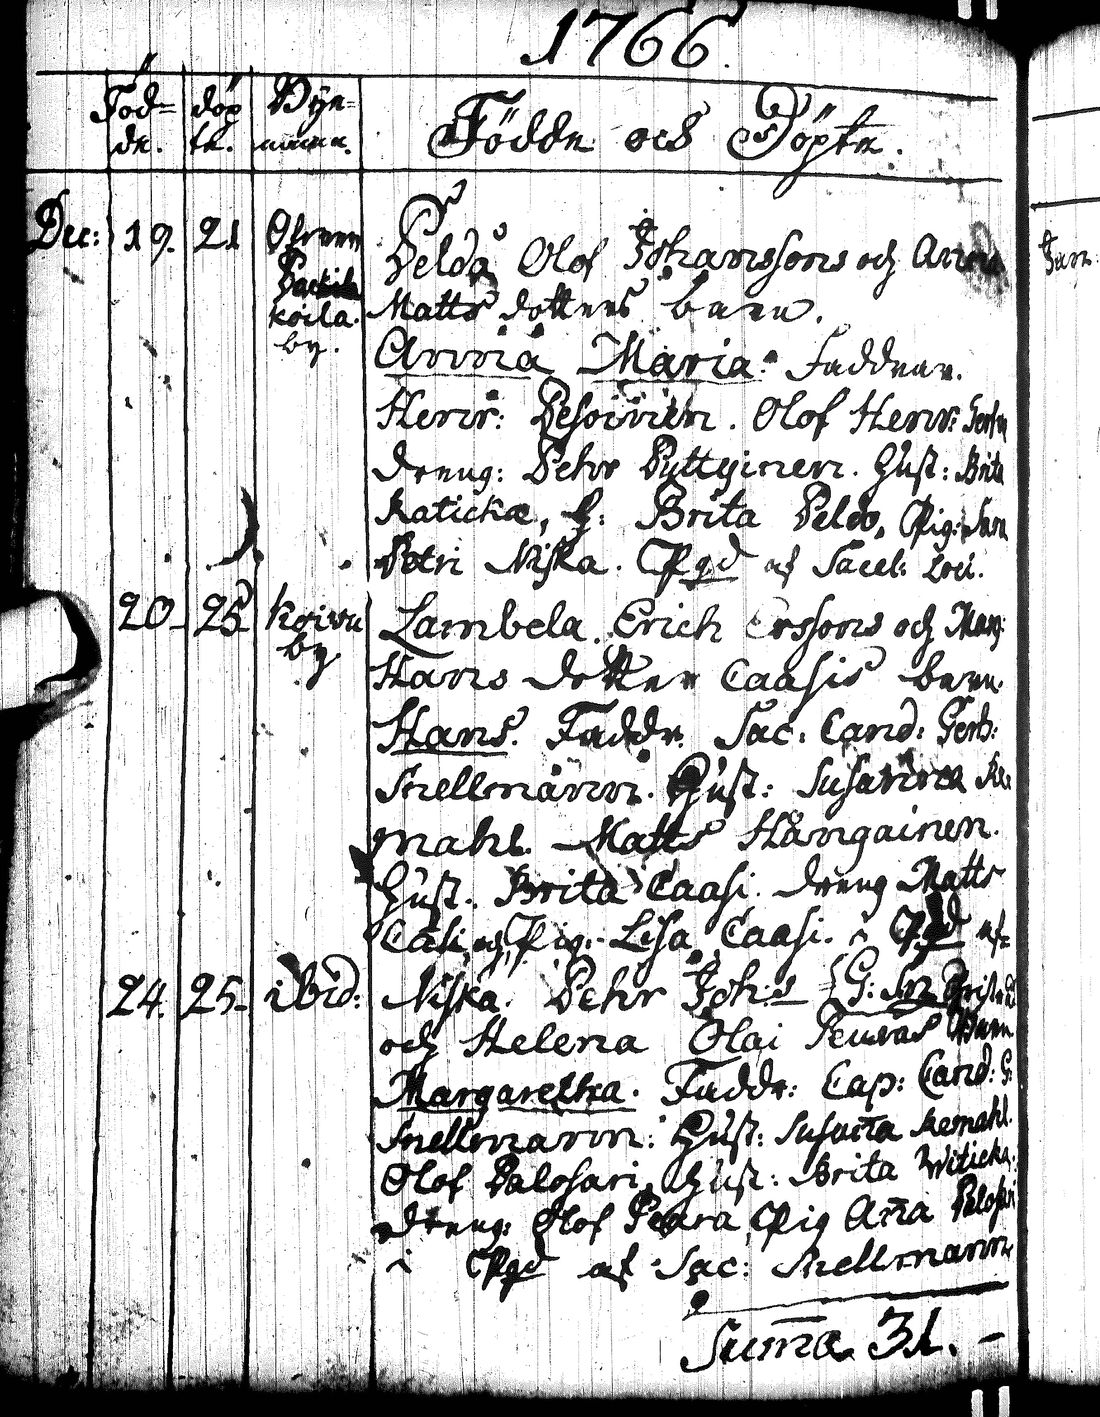 1766.
Föd= döp Byn= Födde och Döpte.
de. te. namn.
Dec: 19. 21 Öfver Pelda Olof Johanssons och Anna
koila. Matts dotters barn.
by. Anna Maria. Faddrar.
Henr: Olof Henr:
dreng: Pehr Pyttyinen. Hust: Brita
Raticka, H: Brita Peldo, Pig:
Petri Niska. Ppgd af Sacel: Loci.
20. 25 Koivu Lambela. Erich Erssons och Marg:
by Hans dotter Caasis barn.
Hans. Faddr. Sac: Cand: Gerh:
Snellmann. Hust: Susanna Ke
mahl. Matts Hångainen.
Hust. Brita Caasi. dreng Matts
Casi, och Pig: Lisa Caasi. Ppgd af=
24. 25. ibid: Niska. Pehr Joh:s
och Helena Olai barn
Margaretha. Faddr: Cap: Cand: G:
Snellmann: Hust: Susaña Kemahl.
Olof Palosari, Hust: Brita Witicka.
dreng: Olof Peura Pig Aña Palosari
Ppgd af Sac: Snellmann
Sum̄a 31. -